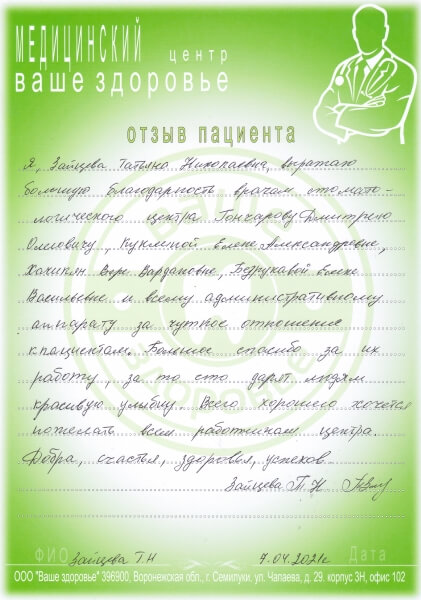 МЕДИЦИНСКИЙ центр
ваше здоровье
отзыв пациента
Я, Зайцева Татьяна Николаевна, выражаю
большую благодарность врачам стомато-
логического центра Гончарову Дмитрию
Олеговичу, Куклиной Елене Александровне,
Вере Вардановне, Елене
Васильевне и всему административному
аппарату за чуткое отношение
к пациентам. Большое спасибо за их
работу, за то что дарят людям
красивую улыбку. Всего хорошего хочется
пожелать всем работникам центра.
Добра, счастья, здоровья, успехов.
Зайцева Т.Н
ФИО Зайцева Т.Н 7.04.2021г Дата
ООО "Ваше здоровье" 396900, Воронежская обл., г. Семилуки, ул. Чапаева, д. 29. корпус 3Н, офис 102